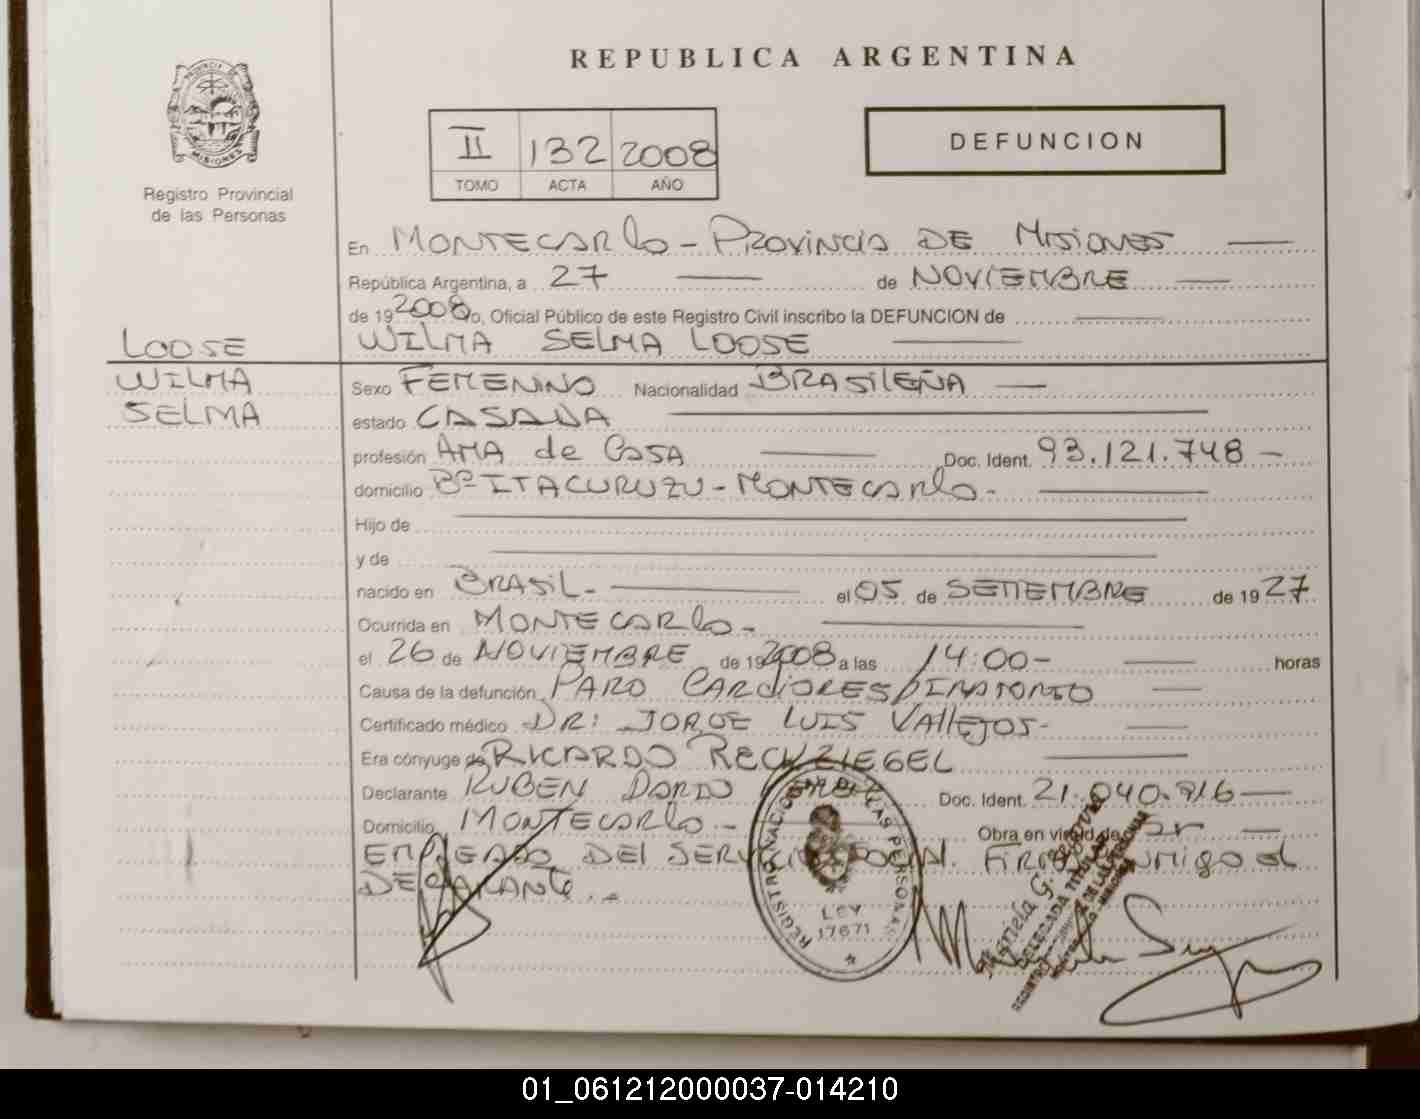 REPUBLICA ARGENTINA
PROVINCIA DE
MISIONES
Registro Provincial
de las Personas
II 132 2008
TOMO ACTA AÑO
DEFUNCION
En MONTECARlo - PROVINCIA DE MISIONES
República Argentina, a 27 de NOVIEMBRE
de 19 2008 o, Oficial Público de este Registro Civil inscribo la DEFUNCION de
LOOSE WILMA SELMA LOOSE
WILMA Sexo FEMENINO Nacionalidad BRASILEÑA
SELMA estado CASADA
profesión AMA de CASA Doc. Ident. 93.121.748 -
domicilio Bº ITACURUZU - MONTECARlo -
Hijo de
y de
nacido en BRASIL - el 05 de SETIEMBRE de 19 27
Ocurrida en MONTECARlo -
el 26 de NOVIEMBRE de 19 2008 a las 14:00 - horas
Causa de la defunción PARO CARDIORESPIRATORIO
Certificado médico DR: JORGE LUIS VALLEJOS -
Era cónyuge de RICARDO RECKZIEGEL
Declarante RUBEN DARIO Doc. Ident. 21.040.716
Domicilio MONTECARlo - Obra en virtud de
EMPLEADO DEL SERVICIO SOCIAL. FIRMA CONMIGO el
DECLARANTE..
REGISTRO NACIONAL DE LAS PERSONAS
LEY
17671
Mariela G.
DELEGADA TITULAR
01_061212000037-014210